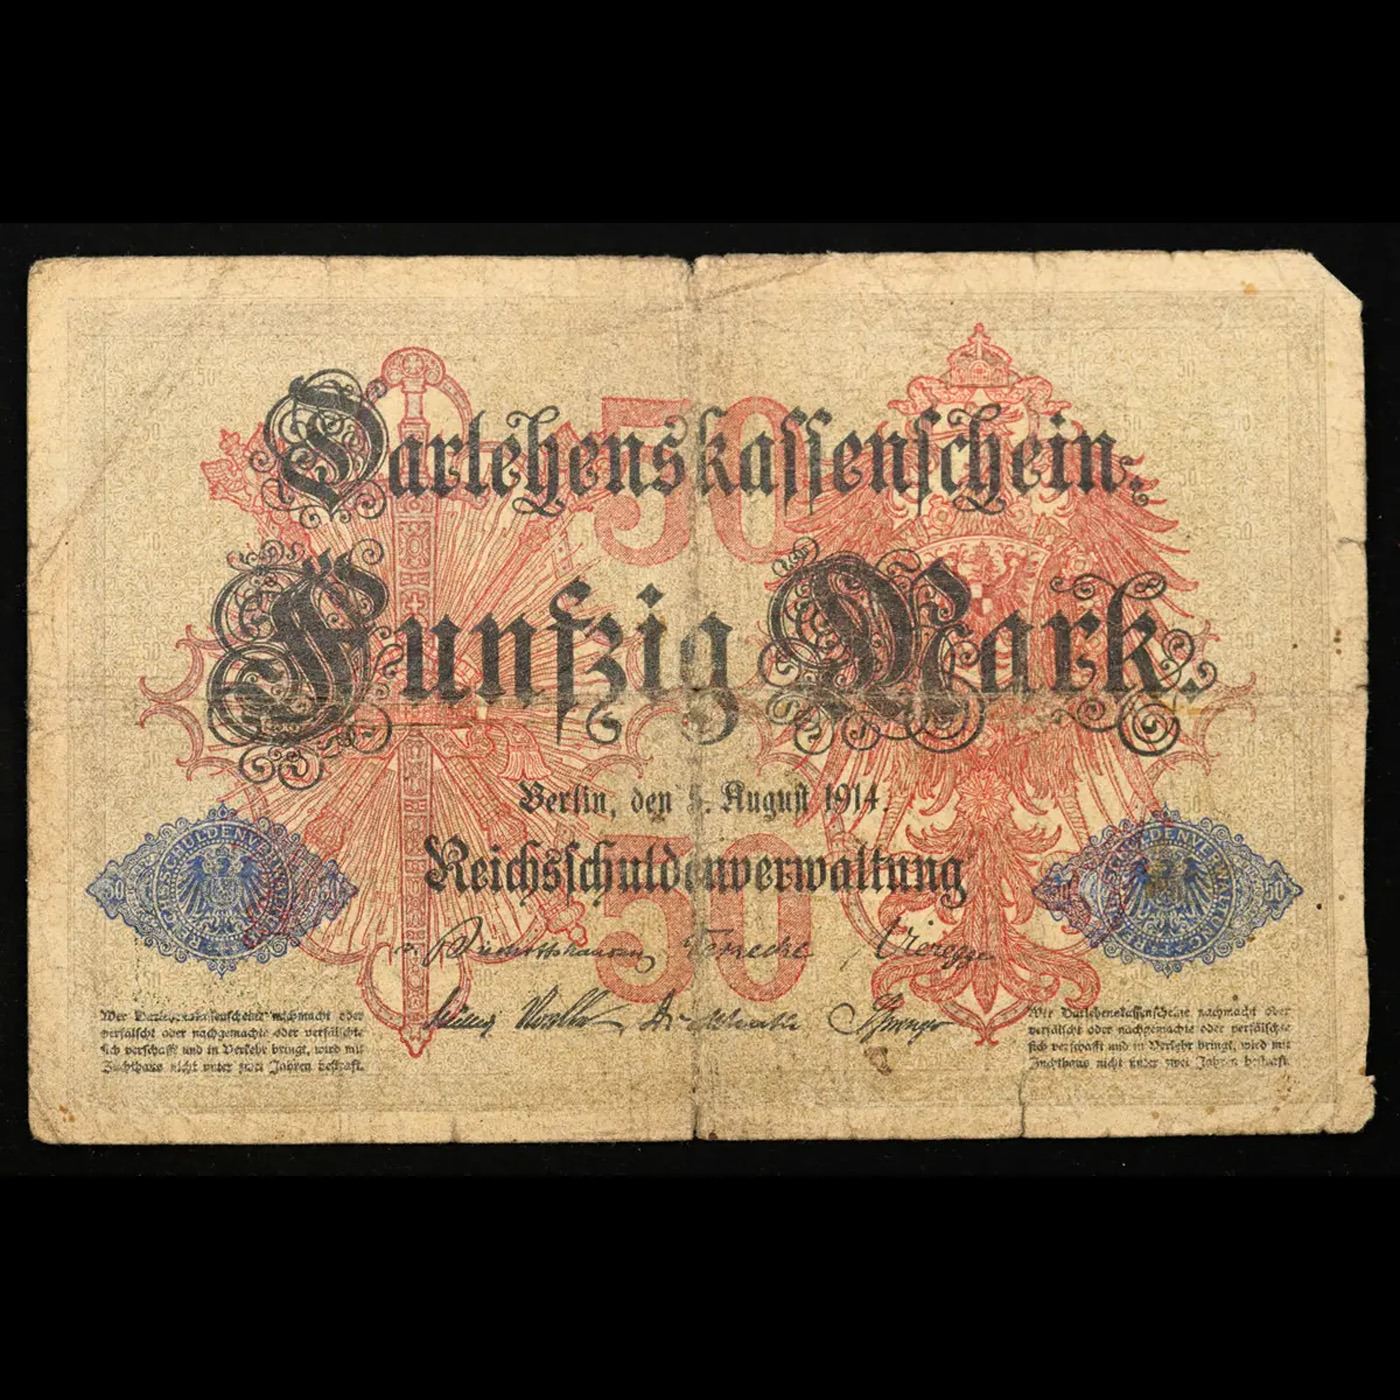 50
Darlehenskassenschein.
Fünfzig Mark.
Berlin, den 5. August 1914.
Reichsschuldenverwaltung
50
REICHSSCHULDENVERWALTUNG
50 50
REICHSSCHULDENVERWALTUNG
50 50
v. Bischoffshausen Warnecke Vieregge
Müller Dr. Springer
Wer Darlehenskassenscheine nachmacht oder
verfälscht oder nachgemachte oder verfälschte
sich verschafft und in Verkehr bringt, wird mit
Zuchthaus nicht unter zwei Jahren bestraft.
Wer Darlehenskassenscheine nachmacht oder
verfälscht oder nachgemachte oder verfälschte
sich verschafft und in Verkehr bringt, wird mit
Zuchthaus nicht unter zwei Jahren bestraft.